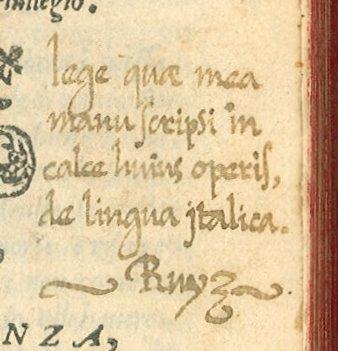 riuilegio.
lege quæ mea
manu scripsi in
calce huius operis,
de lingua jtalica.
Ruyz
N Z A,